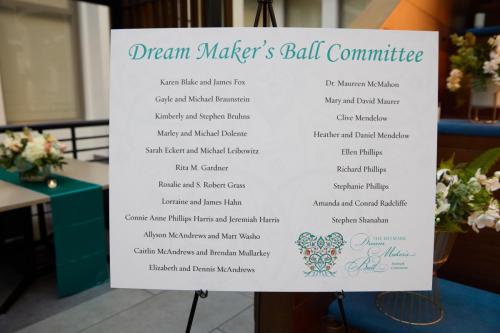 Dream Maker's Ball Committee
Karen Blake and James Fox
Gayle and Michael Braunstein
Kimberly and Stephen Bruhns
Marley and Michael Dolente
Sarah Eckert and Michael Leibowitz
Rita M. Gardner
Rosalie and S. Robert Grass
Lorraine and James Hahn
Connie Anne Phillips Harris and Jeremiah Harris
Allyson McAndrews and Matt Washo
Caitlin McAndrews and Brendan Mullarkey
Elizabeth and Dennis McAndrews
Dr. Maureen McMahon
Mary and David Maurer
Clive Mendelow
Heather and Daniel Mendelow
Ellen Phillips
Richard Phillips
Stephanie Phillips
Amanda and Conrad Radcliffe
Stephen Shanahan
THE MELMARK
Dream
Maker's
Ball